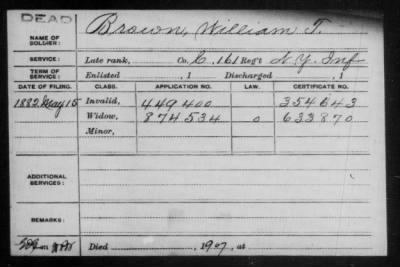 DEAD
NAME OF SOLDIER: Brown, William T.
SERVICE: Late rank, Co. C. 161 Reg't N.Y. Inf
TERM OF SERVICE: Enlisted , 1 Discharged , 1
DATE OF FILING. CLASS. APPLICATION NO. LAW. CERTIFICATE NO.
1882 May 15 Invalid, 449400 354643
Widow, 874534 0 633870
Minor,
ADDITIONAL SERVICES:
REMARKS:
Died , 1907, at